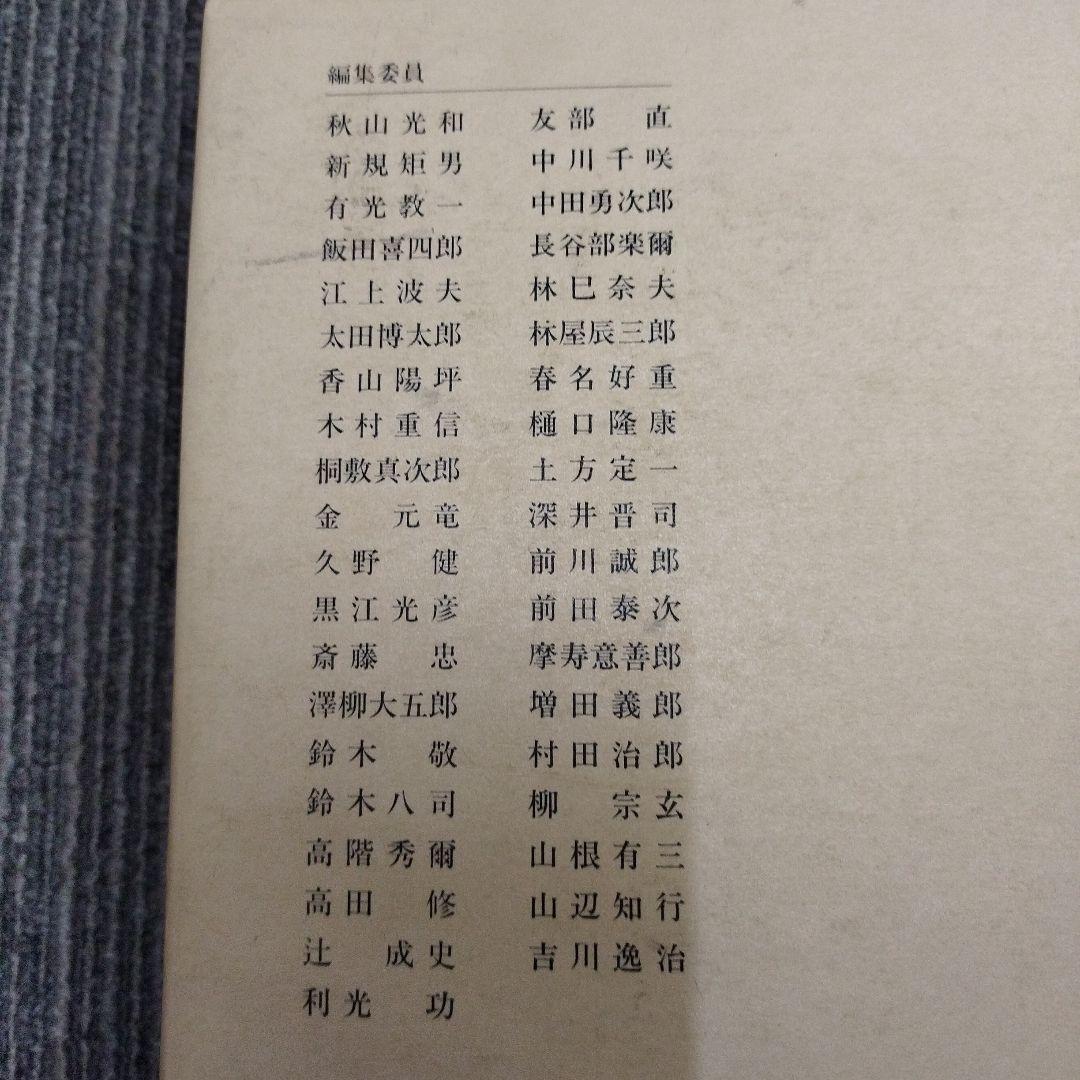 編集委員
秋山光和
新規矩男
有光教一
飯田喜四郎
江上波夫
太田博太郎
香山陽坪
木村重信
桐敷真次郎
金元竜
久野健
黒江光彦
斎藤忠
澤柳大五郎
鈴木敬
鈴木八司
高階秀爾
高田修
辻成史
利光功
友部直
中川千咲
中田勇次郎
長谷部楽爾
林巳奈夫
林屋辰三郎
春名好重
樋口隆康
土方定一
深井晋司
前川誠郎
前田泰次
摩寿意善郎
増田義郎
村田治郎
柳宗玄
山根有三
山辺知行
吉川逸治